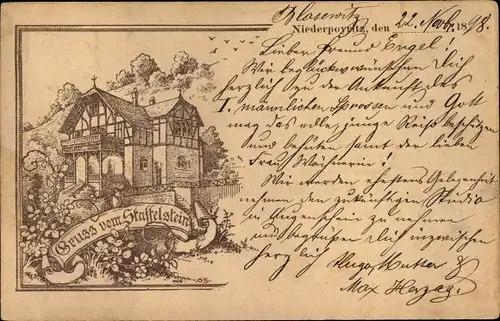 Blasewitz
Niederpoyritz, den 22. Novbr. 1898.
Lieber Freund Engel!
Wir beglückwünschen Dich
herzlich zu der Ankunft des
I. männlichen Sprossen und Gott
mag das edle junge Reis beschützen
und behüten samt der lieben
Frau Wöchnerin!
Wir werden ehestens Gelegenheit
nehmen den zukünftigen Studio
in Augenschein zu nehmen
und begrüßen Dich inzwischen
herzlich Hugo Mutter &
Max Herzog.
Gruss vom Staffelstein